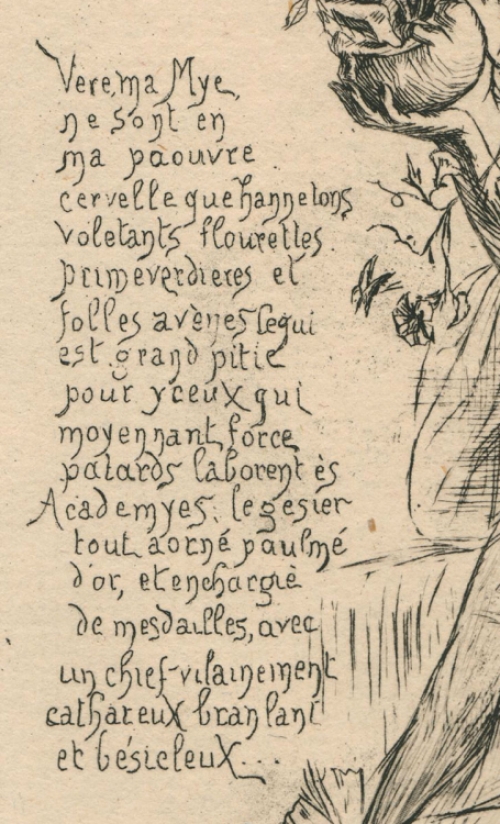 Vere, ma Mye,
ne sont en
ma paouvre
cervelle que hannetons
voletants flourettes
primeverdieres et
folles avènes lequi
est grand pitié
pour yceux qui
moyennant force
patards laborent ès
Academyes. le gesier
tout aorné paulmé
d'or, et enchargié
de mesdailles, avec
un chief vilainement
catháreux branlant
et bésicleux...